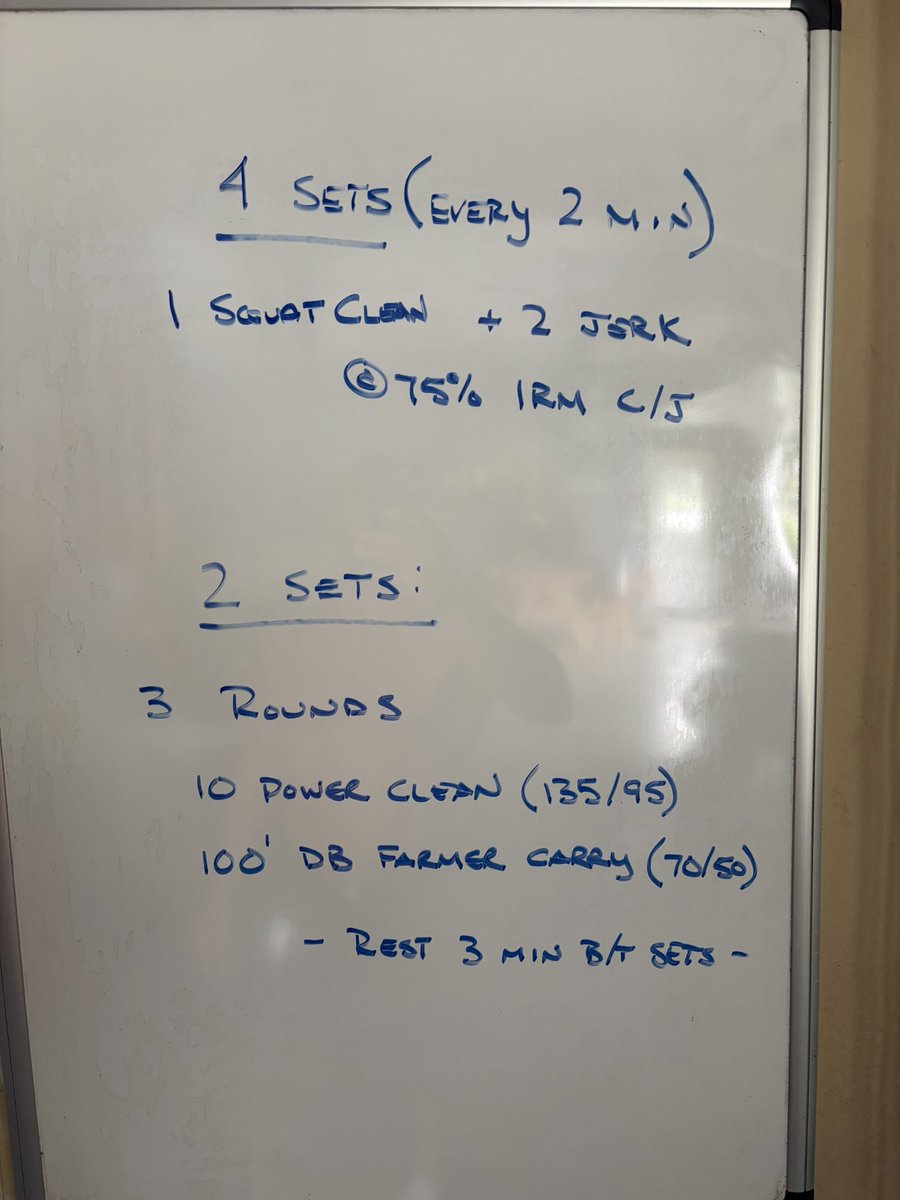 4 SETS (EVERY 2 MIN)
1 SQUAT CLEAN + 2 JERK
@ 75% 1RM C/J
2 SETS:
3 ROUNDS
10 POWER CLEAN (135/95)
100' DB FARMER CARRY (70/50)
- REST 3 MIN B/T SETS -